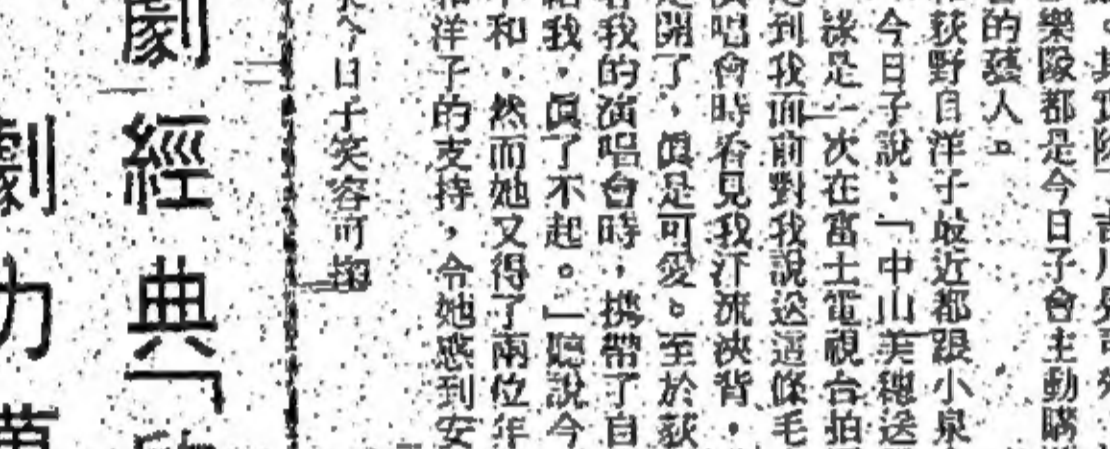 樂隊都是今日子會主動
的藝人。
荻野目洋子最近都跟小泉
今日子說：「中山美穗送
是一次在富士電視台拍
到我面前對我說送這條毛
唱會時看見我汗流浹背，
開了，眞是可愛。至於荻
我的演唱會時，携帶了自
我，眞了不起。」聽說今
和，然而她又得了兩位年
洋子的支持，令她感到安
今日子笑容可掬
劇 經典「
劇力萬